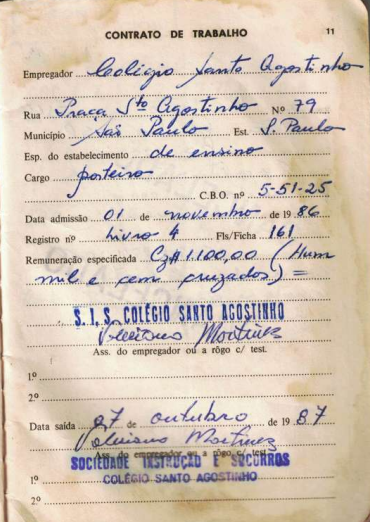 CONTRATO DE TRABALHO 11
Empregador Colégio Santo Agostinho
Rua Praça Sto Agostinho Nº 79
Município São Paulo Est. S. Paulo
Esp. do estabelecimento de ensino
Cargo porteiro
C.B.O. nº 5-51-25
Data admissão 01 de novembro de 1986
Registro nº Livro 4 Fls/Ficha 161
Remuneração especificada Cz$ 1.100,00 (Hum
mil e cem cruzados) =
S. I. S. COLÉGIO SANTO AGOSTINHO
Martinez
Ass. do empregador ou a rôgo c/ test.
1º
2º
Data saída 07 de outubro de 1987
Martinez
Ass. do empregador ou a rôgo c/ test.
SOCIEDADE INSTRUÇÃO E SOCORROS
1º COLÉGIO SANTO AGOSTINHO
2º